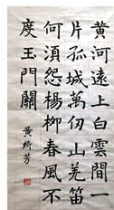 黄河遠上白雲間一
片孤城萬仞山羌笛
何湏怨楊柳春風不
度玉門關
黄綺芳